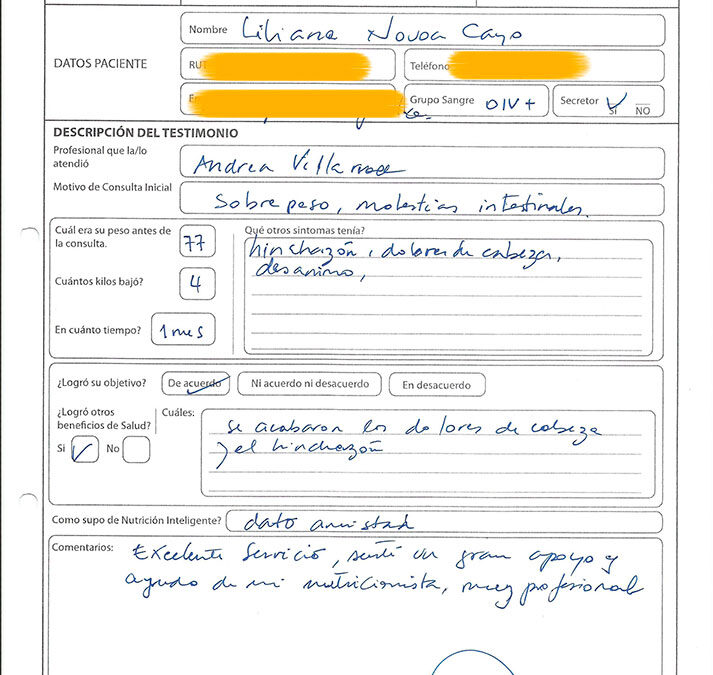 Nombre Liliana Novoa Cayo
DATOS PACIENTE
RUT
Teléfono
Grupo Sangre OIV+
Secretor SI NO
DESCRIPCIÓN DEL TESTIMONIO
Profesional que la/lo
atendió
Andrea
Motivo de Consulta Inicial
Sobrepeso, molestias intestinales.
Cuál era su peso antes de
la consulta.
77
Qué otros sintomas tenía?
hinchazón, dolores de cabeza,
desanimo,
Cuántos kilos bajó?
4
En cuánto tiempo?
1 mes
¿Logró su objetivo?
De acuerdo
Ni acuerdo ni desacuerdo
En desacuerdo
¿Logró otros
beneficios de Salud?
Si No
Cuáles:
se acabaron los dolores de cabeza
y el hinchazón
Como supo de Nutrición Inteligente?
dato amistad
Comentarios:
Excelente Servicio, sentí un gran apoyo y
ayuda de mi nutricionista, muy profesional